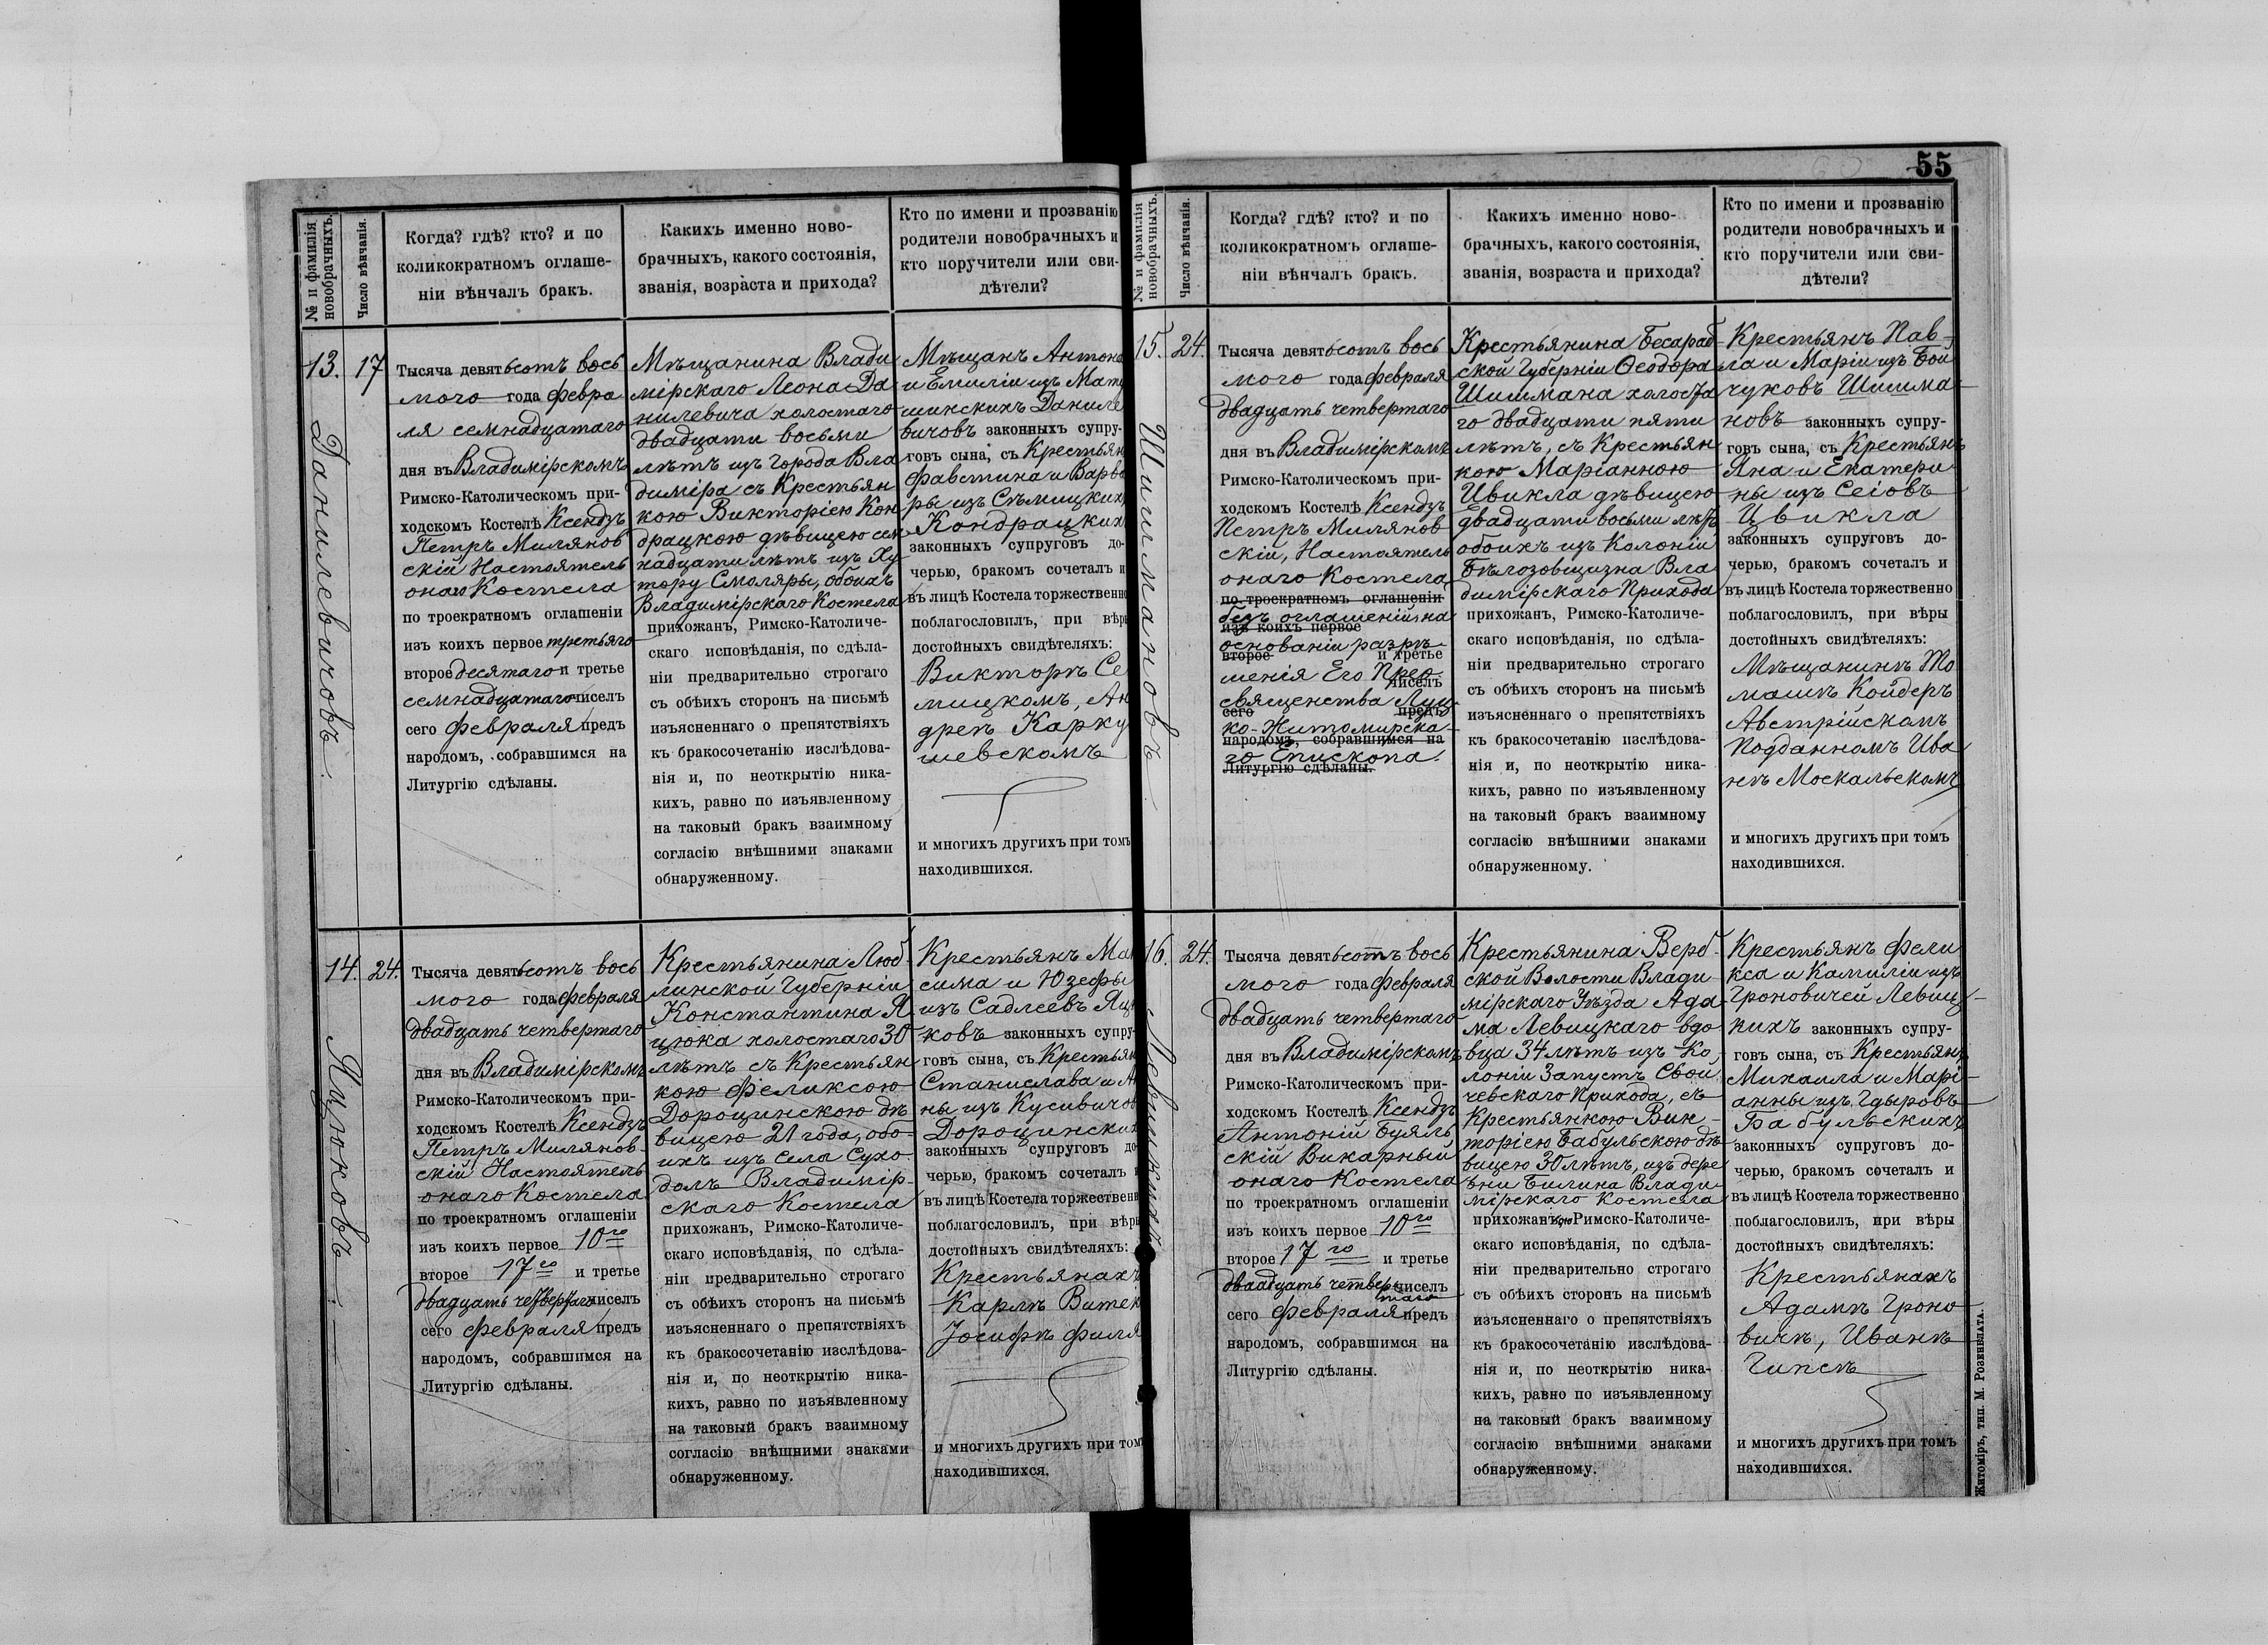 55
№ и фамилія
новобрачныхъ.
Число вѣнчанія.
Когда? гдѣ? кто? и по
коликократномъ оглаше-
ніи вѣнчалъ бракъ.
Какихъ именно ново-
брачныхъ, какого состоянія,
званія, возраста и прихода?
Кто по имени и прозванію
родители новобрачныхъ и
кто поручители или сви-
дѣтели?
13.
Данилевичовъ.
17
Тысяча девятьсотъ вось
мого года февра
ля семнадцатаго
дня въ Владимірскомъ
Римско-Католическомъ при-
ходскомъ Костелѣ Ксендзъ
Петръ Милянов
скій Настоятель
онаго Костела
по троекратномъ оглашеніи
изъ коихъ первое третьяго
второе десятаго и третье
семнадцатаго чиселъ
сего февраля предъ
народомъ, собравшимся на
Литургію сдѣланы.
Мѣщанина Влади
мірскаго Леона Да
нилевича холостаго
двадцати восьми
лѣтъ изъ города Вла
диміра съ Крестьян
кою Викторіею Кон
драцкою дѣвицею сем
надцати лѣтъ изъ Ху
тору Смоляры, обоихъ
Владимірскаго Костела
прихожанъ, Римско-Католиче-
скаго исповѣданія, по сдѣла-
ніи предварительно строгаго
съ обѣихъ сторонъ на письмѣ
изъясненнаго о препятствіяхъ
къ бракосочетанію изслѣдова-
нія и, по неоткрытію ника-
кихъ, равно по изъявленному
на таковый бракъ взаимному
согласію внѣшними знаками
обнаруженному.
Мѣщанъ Антона
и Емиліи изъ Мату
шинскихъ Даниле
вичовъ законныхъ супру-
говъ сына, съ Крестьян
Фавстина и Варва
ры изъ Сѣмицких
Кондрацких
законныхъ супруговъ до-
черью, бракомъ сочеталъ и
въ лицѣ Костела торжественно
поблагословилъ, при вѣры
достойныхъ свидѣтеляхъ:
Викторѣ Се
мицкомъ, Ан
дреѣ Карку
шевскомъ
и многихъ другихъ при томъ
находившихся.
14.
Яцюковъ.
24.
Тысяча девятьсотъ вось
мого года февраля
двадцать четвертаго
дня въ Владимірскомъ
Римско-Католическомъ при-
ходскомъ Костелѣ Ксендзъ
Петръ Милянов-
скій Настоятель
онаго Костела
по троекратномъ оглашеніи
изъ коихъ первое 10го
второе 17го и третье
двадцать четвертаго чиселъ
сего февраля предъ
народомъ, собравшимся на
Литургію сдѣланы.
Крестьянина Люб-
линской Губерніи
Константина Я
цюка холостаго 30
лѣтъ съ Крестьян
кою Феликсою
Дорощинскою дѣ
вицею 21 года, обо-
ихъ изъ села Сухо
долъ Владимір-
скаго Костела
прихожанъ, Римско-Католиче-
скаго исповѣданія, по сдѣла-
ніи предварительно строгаго
съ обѣихъ сторонъ на письмѣ
изъясненнаго о препятствіяхъ
къ бракосочетанію изслѣдова-
нія и, по неоткрытію ника-
кихъ, равно по изъявленному
на таковый бракъ взаимному
согласію внѣшними знаками
обнаруженному.
Крестьянъ Мак
сима и Юзефы
изъ Садлеевъ Яцю
ковъ законныхъ супру-
говъ сына, съ Крестьян
Станислава и Ан
ны изъ Кусивичов
Дорощинских
законныхъ супруговъ до-
черью, бракомъ сочеталъ и
въ лицѣ Костела торжественно
поблагословилъ, при вѣры
достойныхъ свидѣтеляхъ:
Крестьянахъ
Карлѣ Витек
Іосифѣ Филя
и многихъ другихъ при томъ
находившихся.
№ и фамилія
новобрачныхъ.
Число вѣнчанія.
Когда? гдѣ? кто? и по
коликократномъ оглаше-
ніи вѣнчалъ бракъ.
Какихъ именно ново-
брачныхъ, какого состоянія,
званія, возраста и прихода?
Кто по имени и прозванію
родители новобрачныхъ и
кто поручители или сви-
дѣтели?
15.
Шишмановъ.
24.
Тысяча девятьсотъ вось
мого года февраля
двадцать четвертаго
дня въ Владимірскомъ
Римско-Католическомъ при-
ходскомъ Костелѣ Ксендзъ
Петръ Милянов
скій, Настоятель
онаго Костела
по троекратномъ оглашеніи
безъ оглашеній на
изъ коихъ первое
основаніи разрѣ
второе и третье
шенія Его Прео
чиселъ
священства Луц
сего предъ
ко-Житомирска-
народомъ, собравшимся на
го Епископа.
Литургію сдѣланы.
Крестьянина Бесараб
ской Губерніи Ѳеодора
Шишмана холоста
го двадцати пяти
лѣтъ, съ Крестьян
кою Маріанною
Цвикла дѣвицею
двадцати восьми лѣтъ
обоихъ изъ Колоніи
Бѣлозовщизна Вла
димірскаго Прихода
прихожанъ, Римско-Католиче-
скаго исповѣданія, по сдѣла-
ніи предварительно строгаго
съ обѣихъ сторонъ на письмѣ
изъясненнаго о препятствіяхъ
къ бракосочетанію изслѣдова-
нія и, по неоткрытію ника-
кихъ, равно по изъявленному
на таковый бракъ взаимному
согласію внѣшними знаками
обнаруженному.
Крестьянъ Пав-
ла и Маріи изъ Бой
чуковъ Шишма-
новъ законныхъ супру-
говъ сына, съ Крестьянъ
Яна и Екатери
ны изъ Сеіовъ
Цвикла
законныхъ супруговъ до-
черью, бракомъ сочеталъ и
въ лицѣ Костела торжественно
поблагословилъ, при вѣры
достойныхъ свидѣтеляхъ:
Мѣщанинѣ То
машѣ Койдеръ
Австрійскомъ
Подданномъ Ива
нѣ Москальскомъ
и многихъ другихъ при томъ
находившихся.
16.
Левицкихъ
24.
Тысяча девятьсотъ вось
мого года февраля
двадцать четвертаго
дня въ Владимірскомъ
Римско-Католическомъ при-
ходскомъ Костелѣ Ксендзъ
Антоній Буяль
скій Викарный
онаго Костела
по троекратномъ оглашеніи
изъ коихъ первое 10го
второе 17го и третье
двадцать четвер чиселъ
таго
сего февраля предъ
народомъ, собравшимся на
Литургію сдѣланы.
Крестьянина Верб-
ской Волости Влади
мірскаго Уѣзда Ада
ма Левицкаго вдо
вца 34 лѣтъ изъ Ко
лоніи Запустъ Свой
чевскаго Прихода, съ
Крестьянкою Вик-
торіею Бабульскою дѣ
вицею 30 лѣтъ, изъ дере
вни Билина Влади
мірскаго Костела
прихожанкою Римско-Католиче-
скаго исповѣданія, по сдѣла-
ніи предварительно строгаго
съ обѣихъ сторонъ на письмѣ
изъясненнаго о препятствіяхъ
къ бракосочетанію изслѣдова-
нія и, по неоткрытію ника-
кихъ, равно по изъявленному
на таковый бракъ взаимному
согласію внѣшними знаками
обнаруженному.
Крестьянъ Фели
кса и Камиліи изъ
Гроновичей Левиц-
кихъ законныхъ супру-
говъ сына, съ Крестьянъ
Михаила и Марі-
анны изъ Гдыровъ
Бабульскихъ
законныхъ супруговъ до-
черью, бракомъ сочеталъ и
въ лицѣ Костела торжественно
поблагословилъ, при вѣры
достойныхъ свидѣтеляхъ:
Крестьянахъ
Адамѣ Гроно
вичѣ, Иванѣ
Гипсѣ
и многихъ другихъ при томъ
находившихся.
Житоміръ, тип. М. Розенблата.